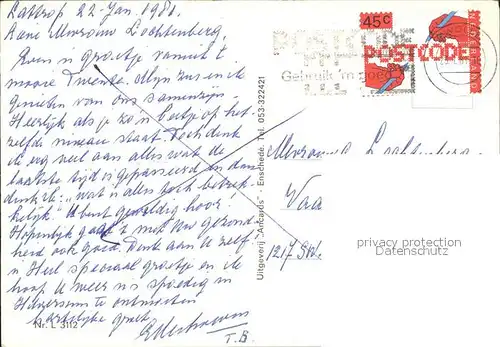 Lattrop 22 Jan. 1981.
Aan Mevrouw Lochtenberg,
Even 'n groetje vanuit 't
mooie Twente. Mijn zus en ik
genieten van ons samenzijn.
Heerlijk als je zo'n beetje op het-
zelfde niveau staat. Toch denk
ik erg veel aan alles wat de
laatste tijd is gepasseerd en dan
denk ik: .. wat is alles toch betrek-
kelijk. U bent geweldig hoor!
Hopenlijk gaat 't met Uw gezond-
heid ook goed. Denk aan U zelf
'n Heel speciaal groetje en ik
hoop U weer 'ns spoedig in
Hilversum te ontmoeten
hartelijke groet
T.B.
Nr. L 3112
Uitgeverij "Ancards" - Enschede. Tel. 053-322421
45c
POSTCODE
NEDERLAND
POSTCODE
Gebruik 'm goed
Mevrouw Lochtenberg
Vaa
1217 SW.
privacy protection
Datenschutz